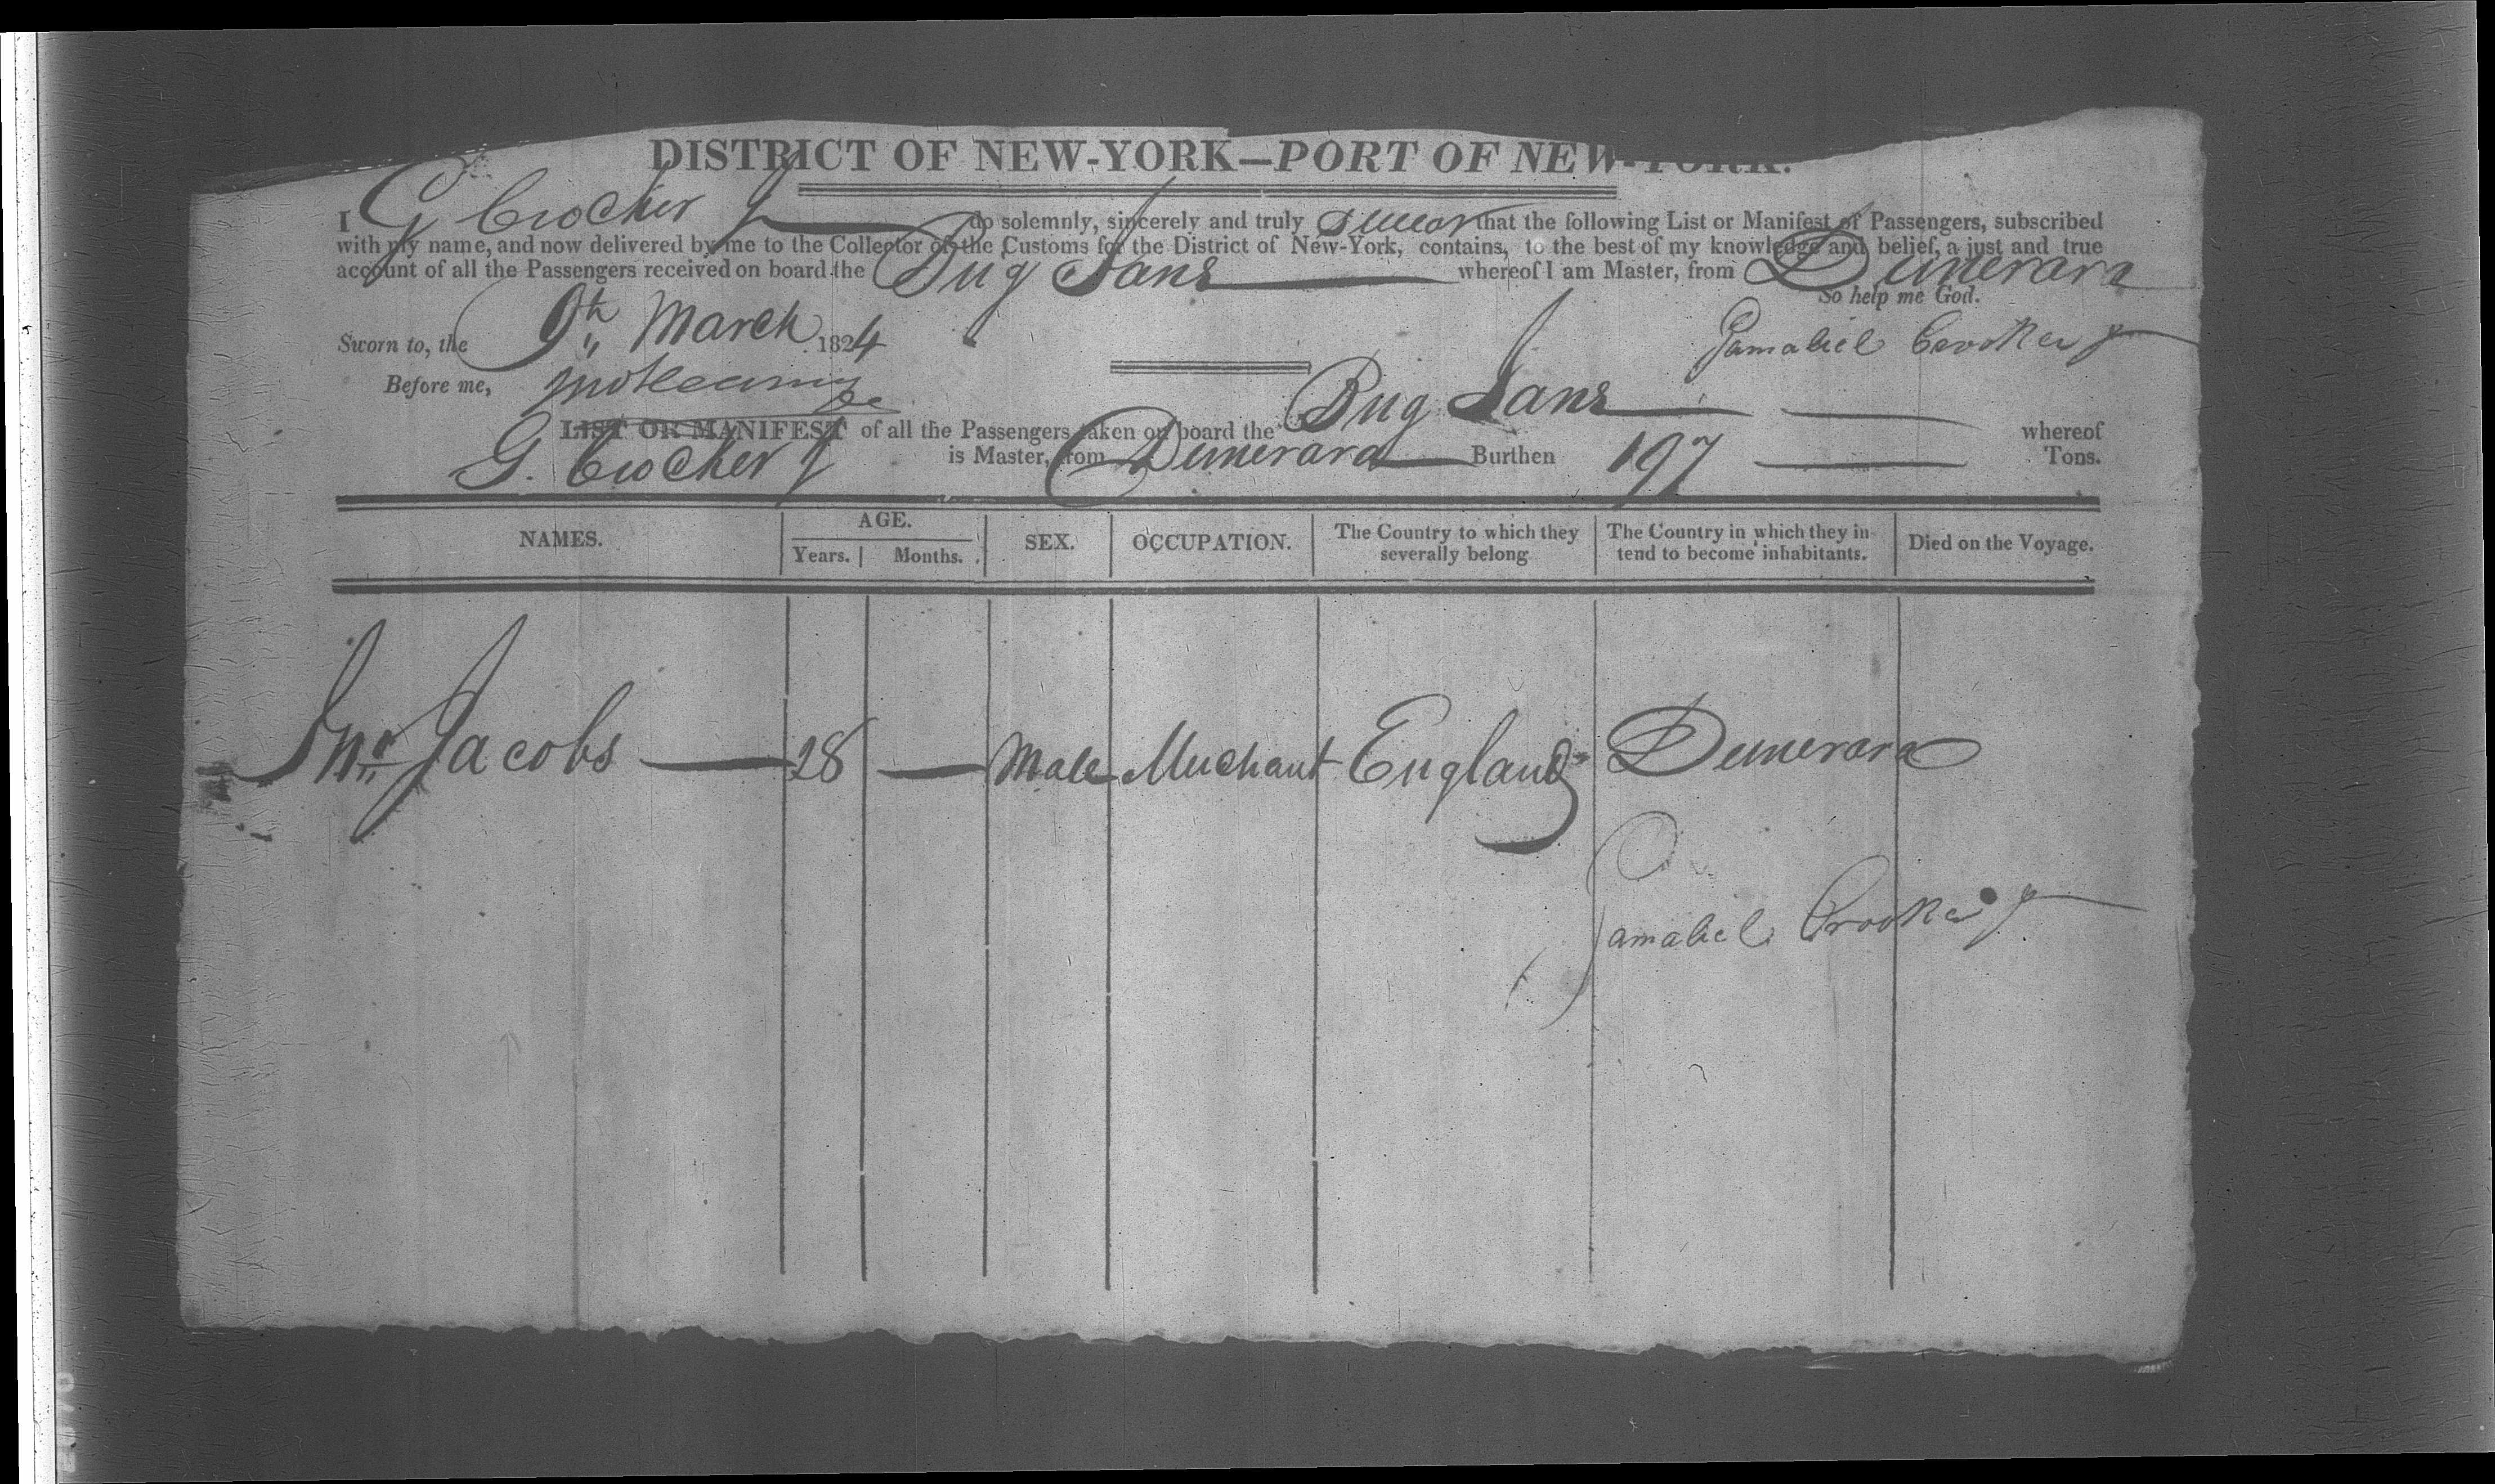 DISTRICT OF NEW-YORK—PORT OF NEW-YORK.
I G Crocker Jr do solemnly, sincerely and truly swear that the following List or Manifest of Passengers, subscribed
with my name, and now delivered by me to the Collector of the Customs for the District of New-York, contains, to the best of my knowledge and belief, a just and true
account of all the Passengers received on board the Brig Jane whereof I am Master, from Demerara
So help me God.
Sworn to, the 9th March 1824
Gamaliel Crocker Jr
Before me,
LIST OR MANIFEST of all the Passengers taken on board the Brig Jane whereof
G. Crocker Jr is Master, from Demerara Burthen 197 Tons.
NAMES. AGE. Years. Months. SEX. OCCUPATION. The Country to which they severally belong The Country in which they intend to become inhabitants. Died on the Voyage.
Jno Jacobs — 28 — Male Merchant England Demerara
Gamaliel Crocker Jr